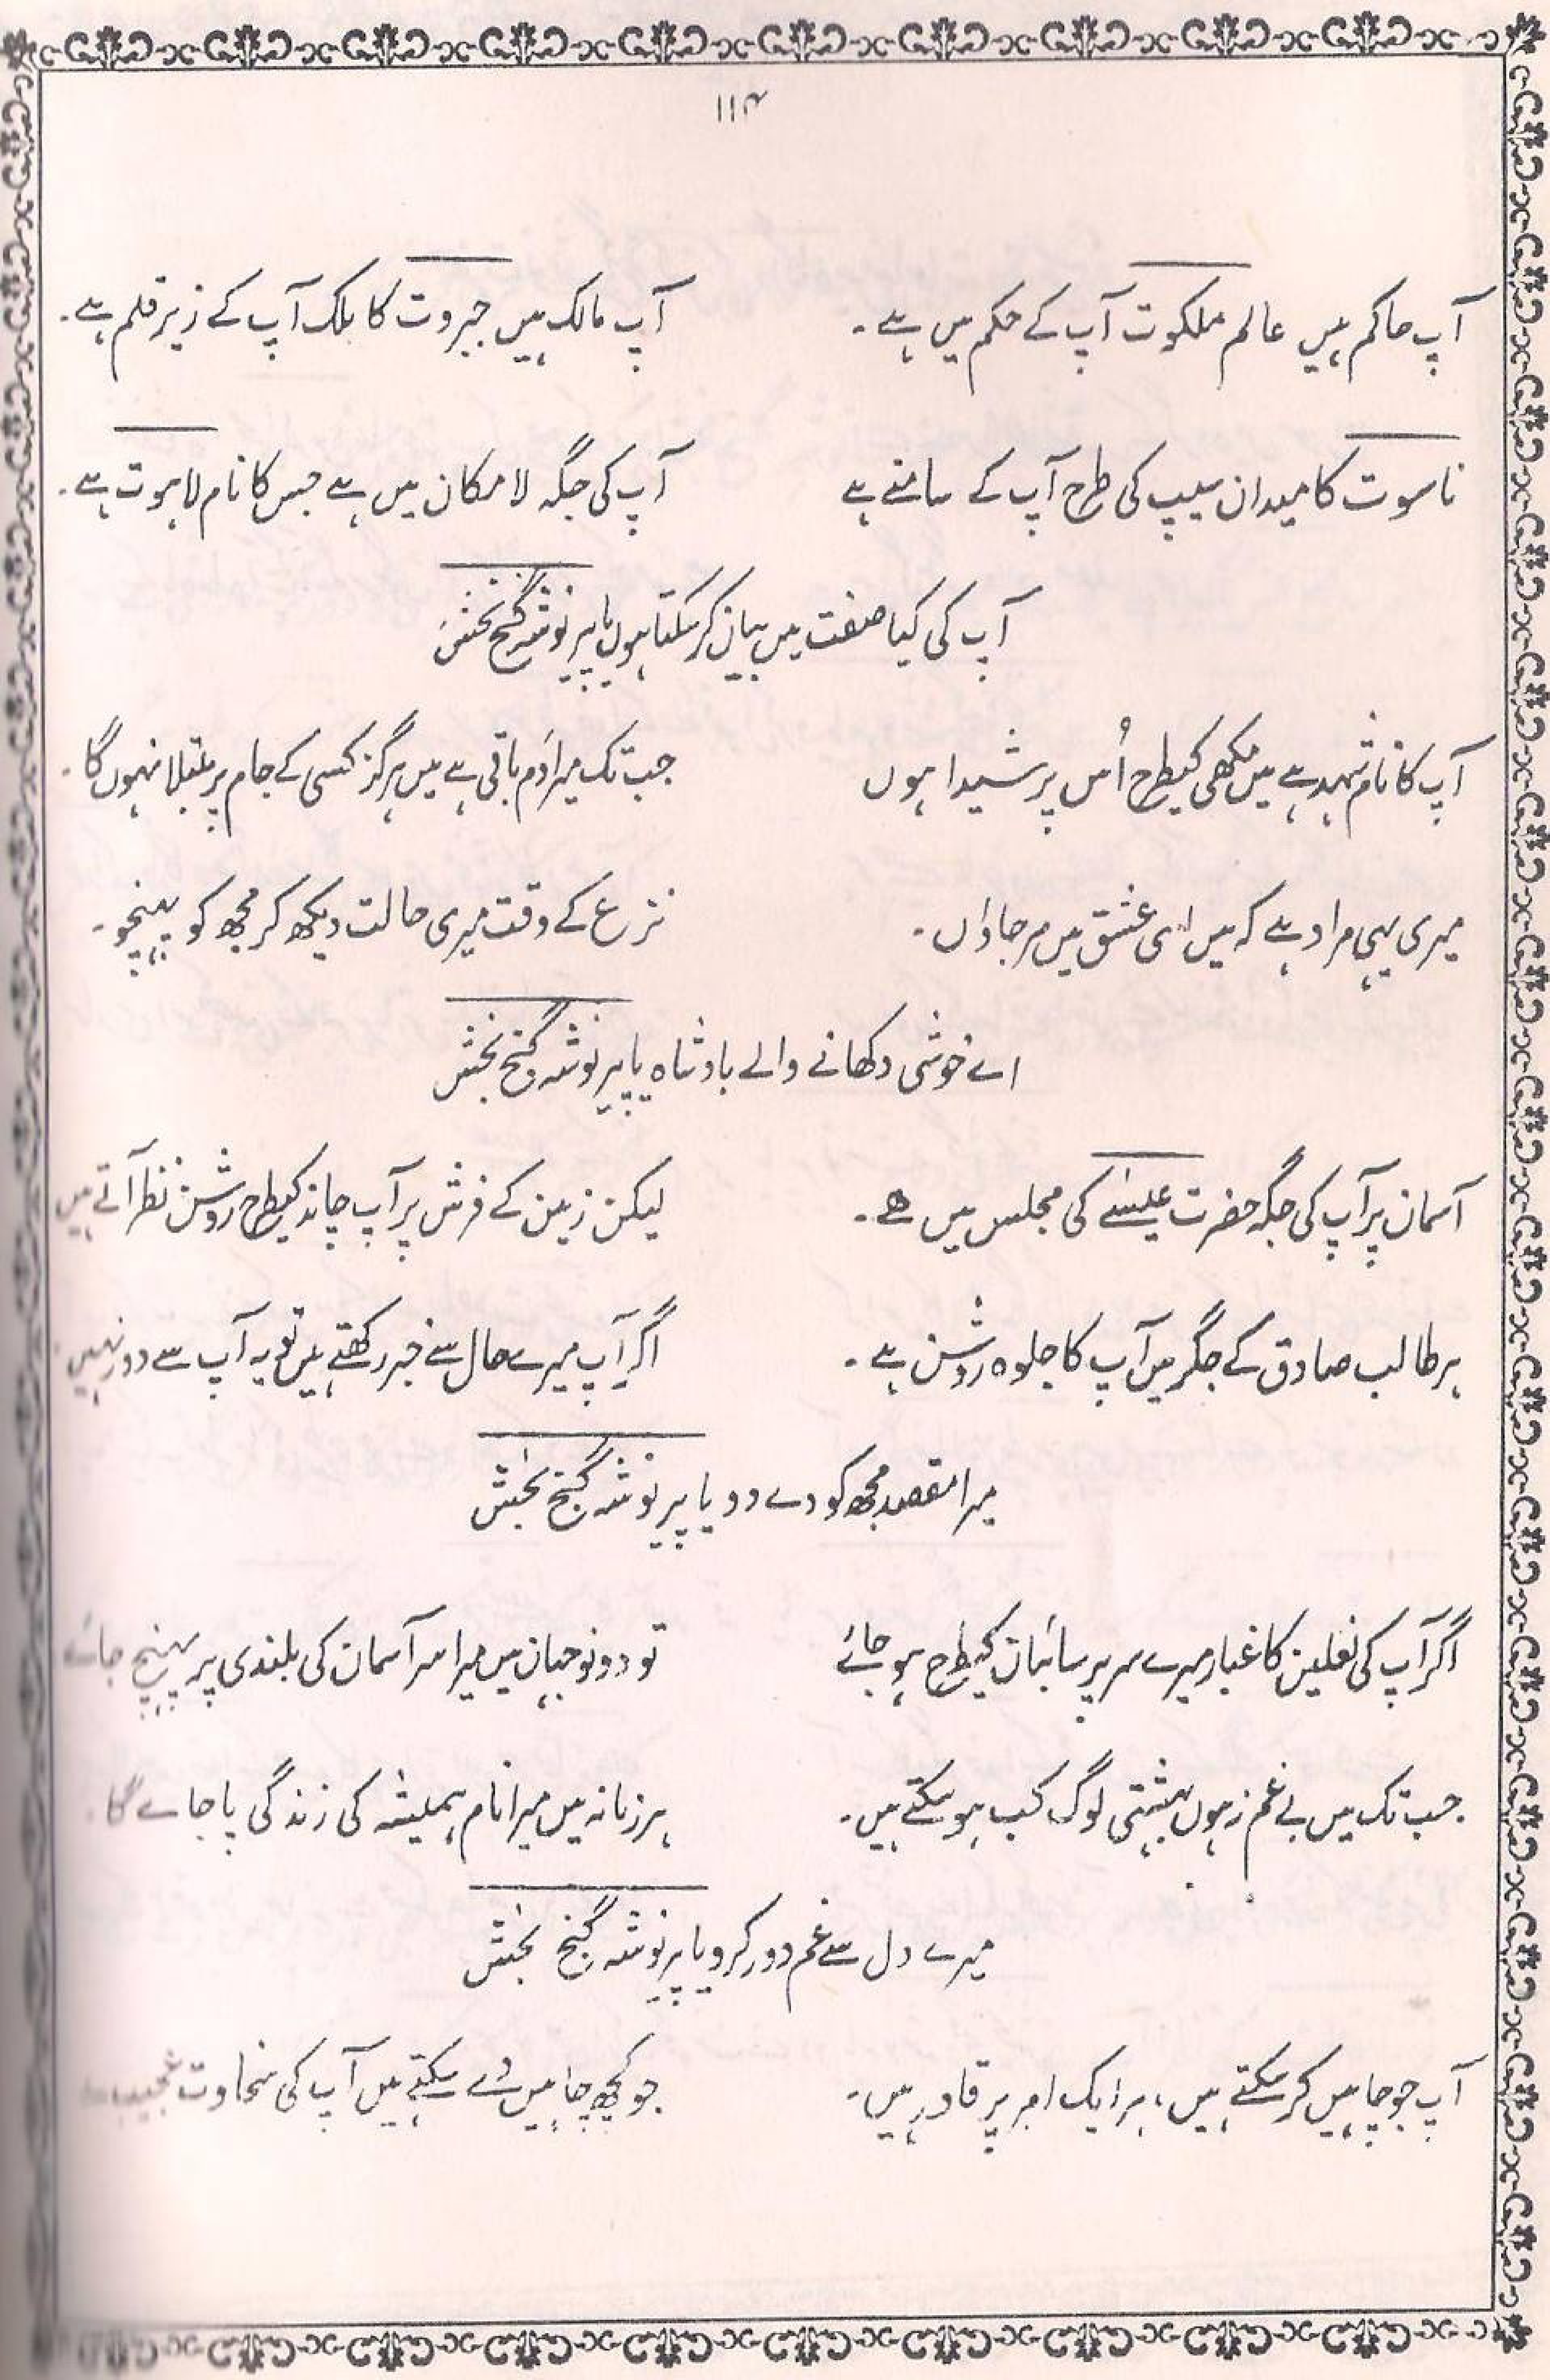 ۱۱۴
آپ حاکم ہیں عالم ملکوت آپ کے حکم میں ہے۔ آپ مالک ہیں جبروت کا ملک آپ کے زیر قلم ہے۔
ناسوت کا میدان سیپ کی طرح آپ کے سامنے ہے آپ کی جگہ لامکان میں ہے جس کا نام لاہوت ہے۔
آپ کی کیا صفت میں بیان کر سکتا ہوں یا پیر نوشہ گنج بخش
آپ کا نام شہد ہے میں مکھی کیطرح اُس پر شیدا ہوں جب تک میرا دَم باقی ہے میں ہرگز کسی کے جام پر مبتلا نہوں گا۔
میری یہی مراد ہے کہ میں اسی عشق میں مر جاواں۔ نزع کے وقت میری حالت دیکھ کر مجھ کو پہنچو۔
اے خوشی دکھانے والے بادشاہ یا پیر نوشہ گنج بخش
آسمان پر آپ کی جگہ حضرت عیسٰے کی مجلس میں ہے۔ لیکن زمین کے فرش پر آپ چاند کیطرح روشن نظر آتے ہیں
ہر طالب صادق کے جگر میں آپ کا جلوہ روشن ہے۔ اگر آپ میرے حال سے خبر رکھتے ہیں تو یہ آپ سے دور نہیں۔
میرا مقصد مجھ کو دے دو یا پیر نوشہ گنج بخش
اگر آپ کی نعلین کا غبار میرے سر پر سائبان کیطرح ہو جائے تو دونو جہان میں میرا سر آسمان کی بلندی پر پہنچ جائے
جب تک میں بے غم نہوں بہشتی لوگ کب ہو سکتے ہیں۔ ہر زمانہ میں میرا نام ہمیشہ کی زندگی پا جاے گا۔
میرے دل سے غم دور کرو یا پیر نوشہ گنج بخش
آپ جو چاہیں کر سکتے ہیں، ہر ایک امر پر قادر ہیں۔ جو کچھ چاہیں دے سکتے ہیں آپ کی سخاوت عجیب